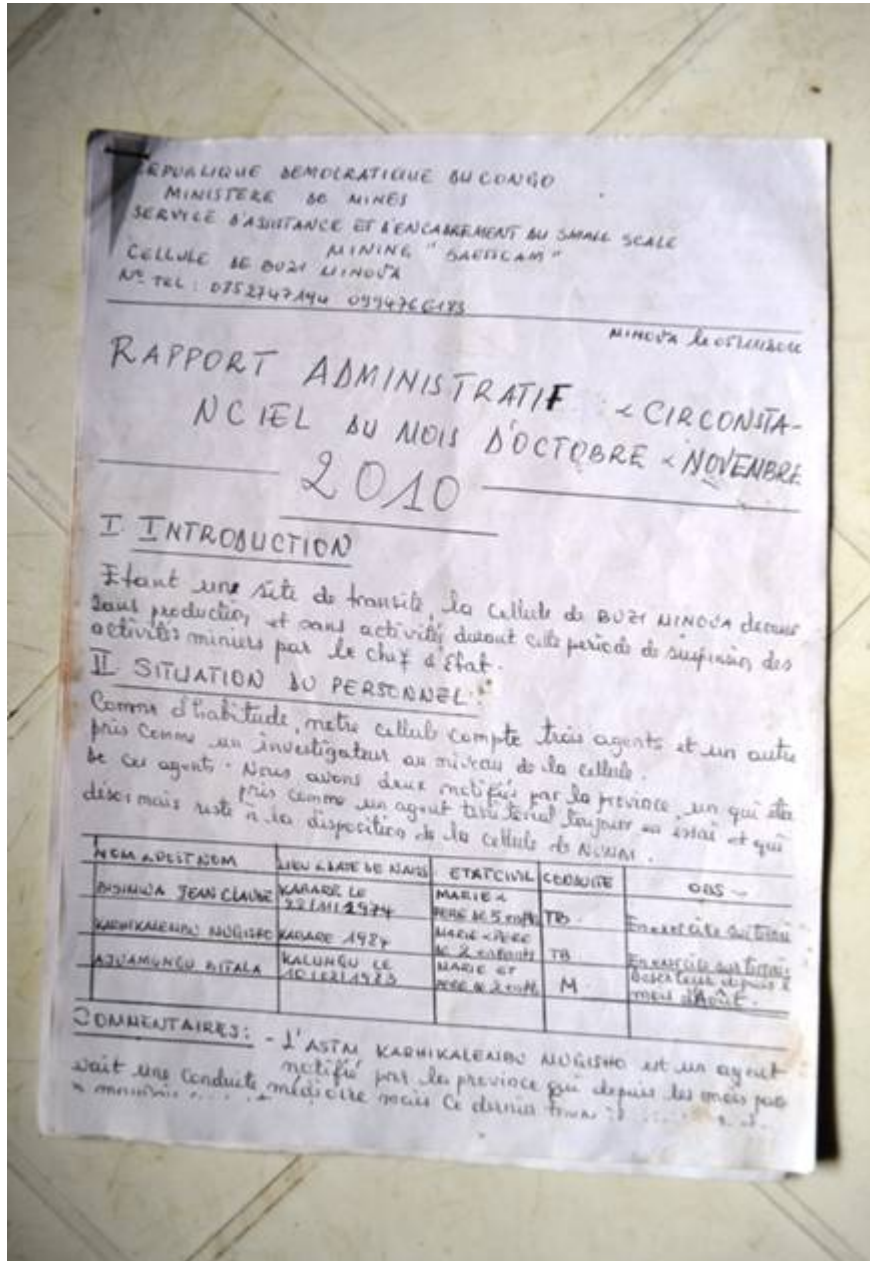 REPUBLIQUE DEMOCRATIQUE DU CONGO
MINISTERE DE MINES
SERVICE D'ASSISTANCE ET D'ENCADREMENT DU SMALL SCALE
MINING "SAESSCAM"
CELLULE DE BUZI MINOVA
N° TEL : 0852747194 0994766183
MINOVA le
RAPPORT ADMINISTRATIF & CIRCONSTA-
NCIEL DU MOIS D'OCTOBRE & NOVEMBRE
2010
I INTRODUCTION
Etant une site de transite, la cellule de BUZI MINOVA
sans production et sans activités durant cette periode de suspension des
activités miniers par le chef d'Etat.
II SITUATION DU PERSONNEL :
Comme d'habitude, notre cellule compte trois agents et un autre
pris comme un investigateur au niveau de la cellule.
De ces agents. Nous avons deux notifiés par la province, un qui
pris comme un agent territorial toujours en essai et qui
désormais reste à la disposition de la cellule de
NOM & POSTNOM LIEU & DATE DE NAISS ETAT CIVIL CONDUITE OBS
BISIMWA JEAN CLAUDE KABARE LE 22/11/1974 MARIE & PERE DE 5 enfts TB. En exercice sur terrain
KARHIKALEMBU MUGISHO KABARE 1984 MARIE & PERE DE 2 enfants TB En exercice sur terrain
AJUAMUNGU BITALA KALUNGU LE 1983 MARIE ET PERE DE 2 enfts M Deserteur depuis mois d'Août.
COMMENTAIRES : - L'ASTM KARHIKALEMBU MUGISHO est un agent
notifié par la province qui depuis les mois
avait une conduite médiocre mais ce dernier